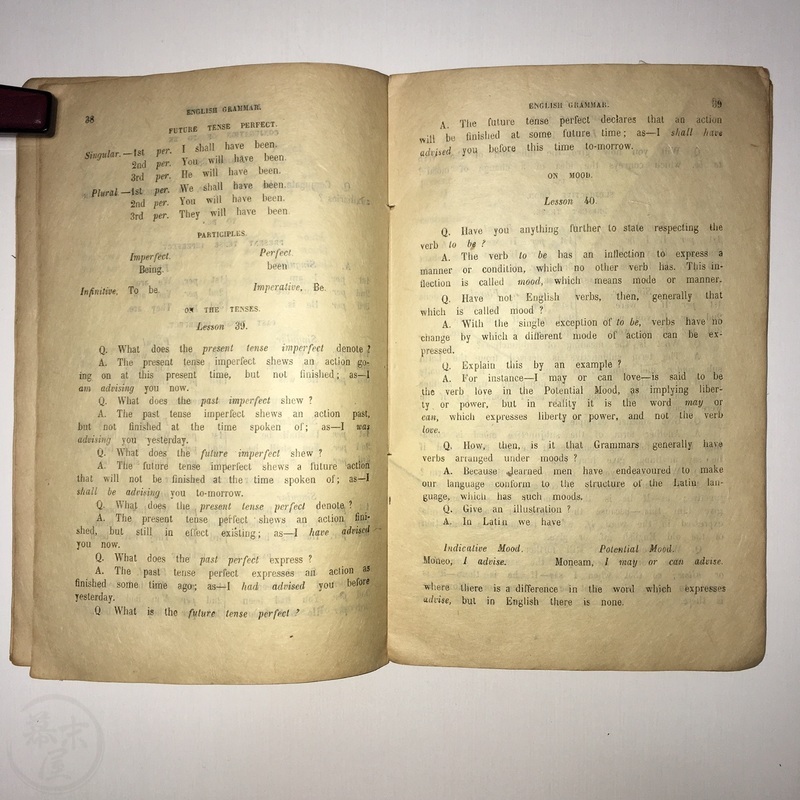 38
ENGLISH GRAMMAR.
FUTURE TENSE PERFECT.
Singular.—1st per. I shall have been.
2nd per. You will have been.
3rd per. He will have been.
Plural—1st per. We shall have been.
2nd per. You will have been.
3rd per. They will have been
PARTICIPLES.
Imperfect. Perfect.
Being. been
Infinitive, To be. Imperative, Be.
ON THE TENSES.
Lesson 39.
Q. What does the present tense imperfect denote?
A. The present tense imperfect shews an action go-
ing on at this present time, but not finished; as—I
am advising you now.
Q. What does the past imperfect shew?
A. The past tense imperfect shews an action past,
but not finished at the time spoken of; as—I was
advising you yesterday.
Q. What does the future imperfect shew?
A. The future tense imperfect shews a future action
that will not be finished at the time spoken of; as—I
shall be advising you to-morrow.
Q. What does the present tense perfect denote?
A. The present tense perfect shews an action fini-
shed, but still in effect existing; as—I have advised
you now.
Q. What does the past perfect express?
A. The past tense perfect expresses an action as
finished some time ago; as—I had advised you before
yesterday.
Q What is the future tense perfect?
ENGLISH GRAMMAR.
39
A. The future tense perfect declares that an action
will be finished at some future time; as—I shall have
advised you before this time to-morrow.
ON MOOD.
Lesson 40.
Q. Have you anything further to state respecting the
verb to be?
A. The verb to be has an inflection to express a
manner or condition, which no other verb has. This in-
flection is called mood, which means mode or manner.
Q. Have not English verbs, then, generally that
which is called mood?
A. With the single exception of to be, verbs have no
change by which a different mode of action can be ex-
pressed.
Q. Explain this by an example?
A. For instance—I may or can love—is said to be
the verb love in the Potential Mood, as implying liber-
ty or power, but in reality it is the word may or
can, which expresses liberty or power, and not the verb
love.
Q. How, then, is it that Grammars generally have
verbs arranged under moods?
A. Because learned men have endeavoured to make
our language conform to the structure of the Latin lan-
guage, which has such moods.
Q. Give an illustration?
A. In Latin we have
Indicative Mood. Potential Mood.
Moneo, I advise. Moneam, I may or can advise.
where there is a difference in the word which expresses
advise, but in English there is none.
幕末屋